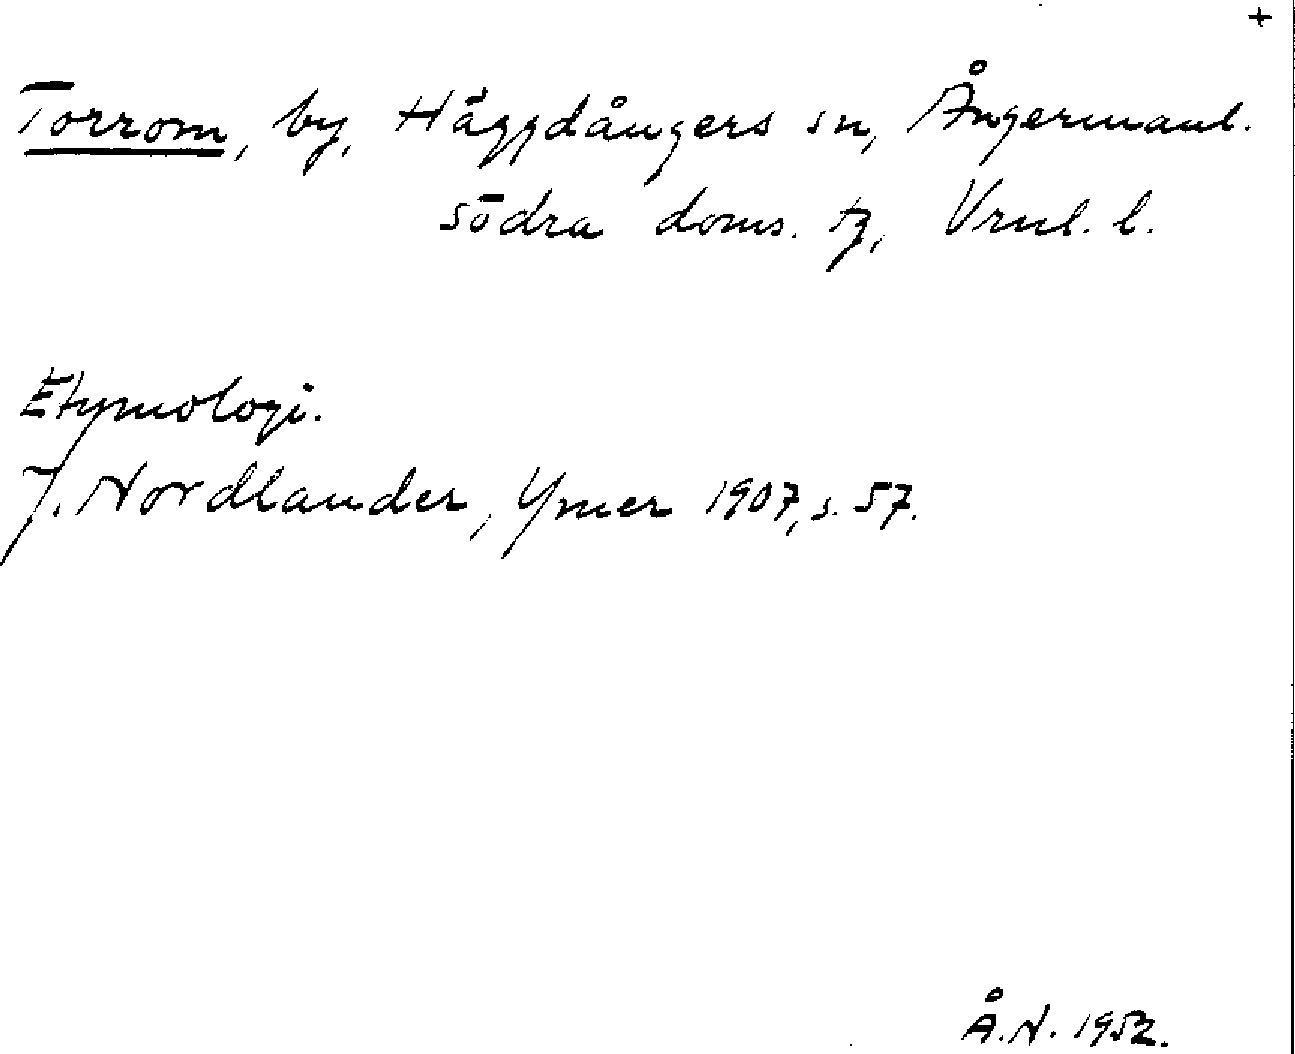 +
Torrom, by, Häggdångers sn, Ångermanl.
södra doms. tg, Vrnl. l.
Etymologi.
J. Nordlander, Ymer 1907, s. 57.
Å.N. 1952.